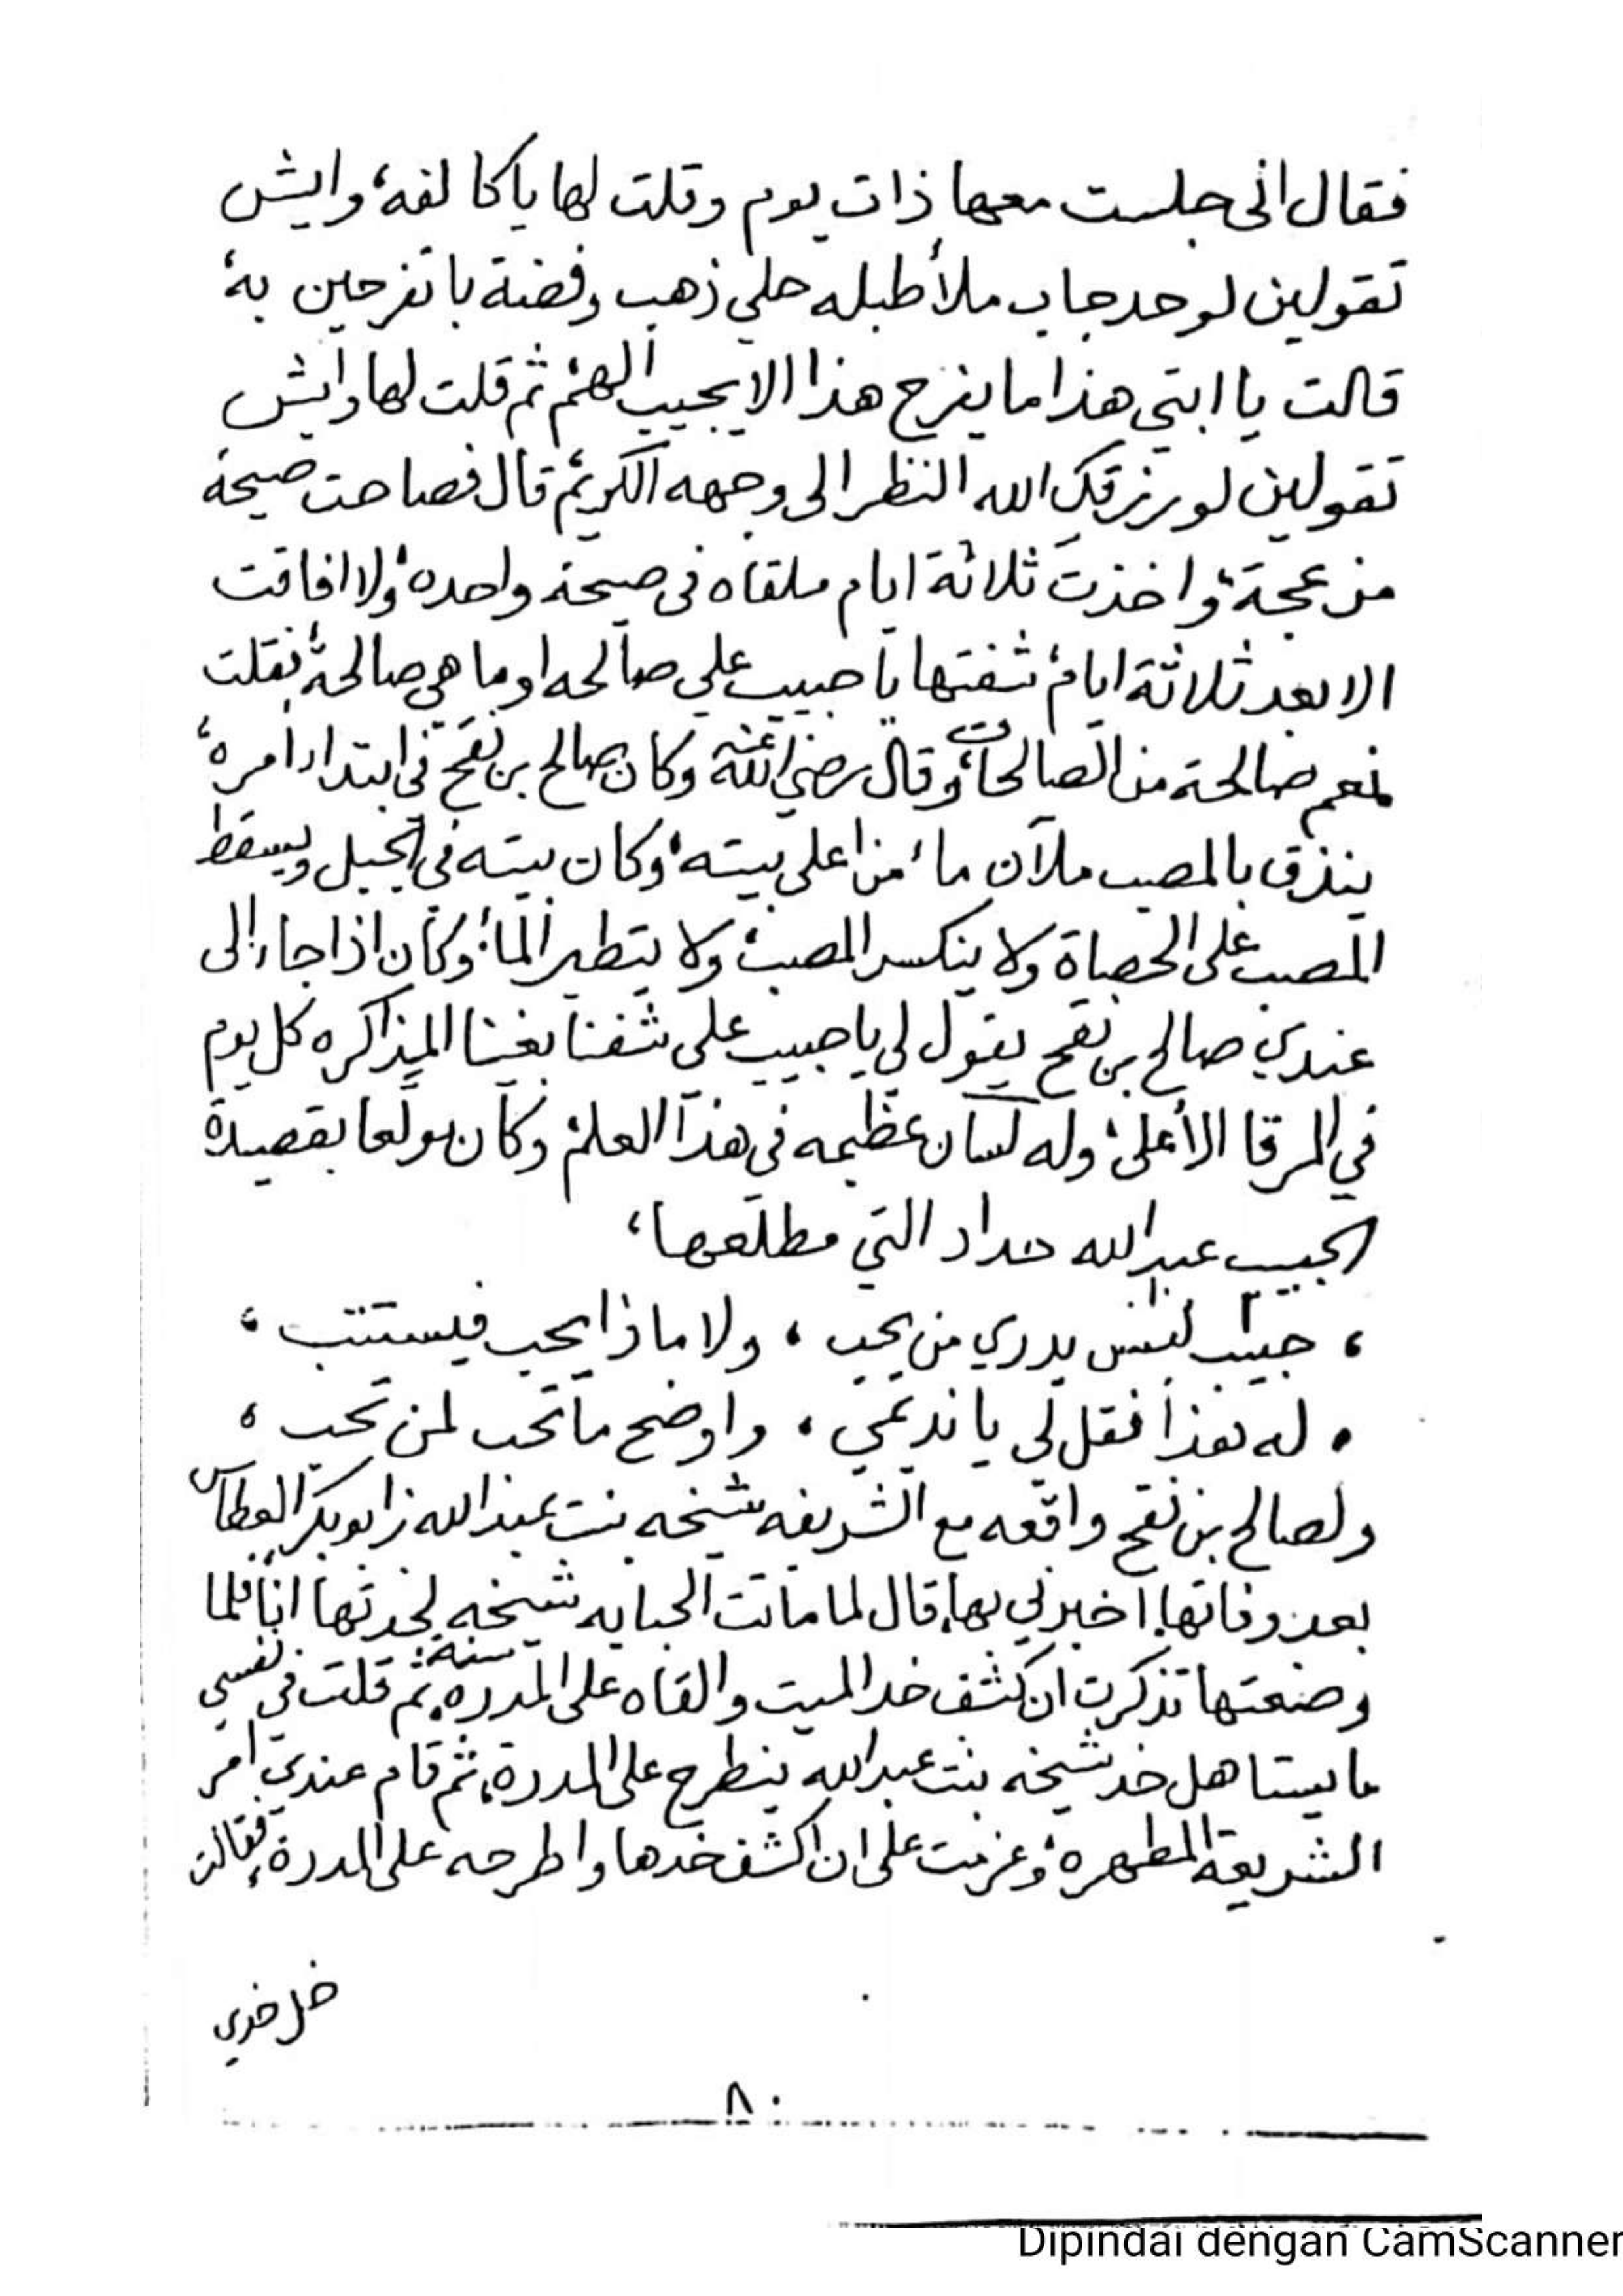 فقال انى جلست معها ذات يوم وقلت لها ياكا لفه، وايش
تقولين لو حد جاب ملأ طبله حلي ذهب وفضة با تفرحين به،
قالت يا ابتي هذا ما يفرح هذا الا يجيب الهمّ ثم قلت لها وايش
تقولين لو رزقك الله النظر الى وجهه الكريم، قال فصاحت صيحة
مزعجة، واخذت ثلاثة ايام ملقاه فى صيحة واحده، ولا افاقت
الا بعد ثلاثة ايام، شفتها يا حبيب علي صالحه او ما هي صالحة، فقلت
نعم صالحة من الصالحات، وقال رضي الله عنه وكان صالح بن نقح في ابتداء امره،
ينزق بالمصب ملآن ماء من اعلى بيته، وكان بيته في الجبل ويسقط
المصب على الحصاة ولا ينكسر المصب، ولا يتطير الماء، وكان اذا جاء الى
عندي صالح بن نقح يقول لي يا حبيب علي شفنا بغينا المذاكره كل يوم
في المرقا الأعلى، وله لسان عظيمه فى هذا العلم، وكان مولعا بقصيدة
الحبيب عبدالله حداد التي مطلعها،
، حبيب ليس يدري من يحب ، ولا ماذا يحب فيستتب ،
، له هذا فقل لى يا نديمي ، واوضح ما تحب لمن تحب ،
ولصالح بن نقح واقعه مع الشريفه شيخه بنت عبدالله بن ابوبكر العطاس
بعد وفاتها، اخبرني بها، قال لما ماتت الحبابه شيخه لحدتها انا فلما
وضعتها تذكرت ان كشف خد الميت والقاه على المدره سنة، ثم قلت في نفسي
ما يستاهل خد شيخه بنت عبدالله ينطرح على المدرة، ثم قام عندي امر
الشريعة المطهره، وعزمت على ان اكشف خدها واطرحه على المدرة، فقالت
خل خدي
٨٠
Dipindai dengan CamScanner